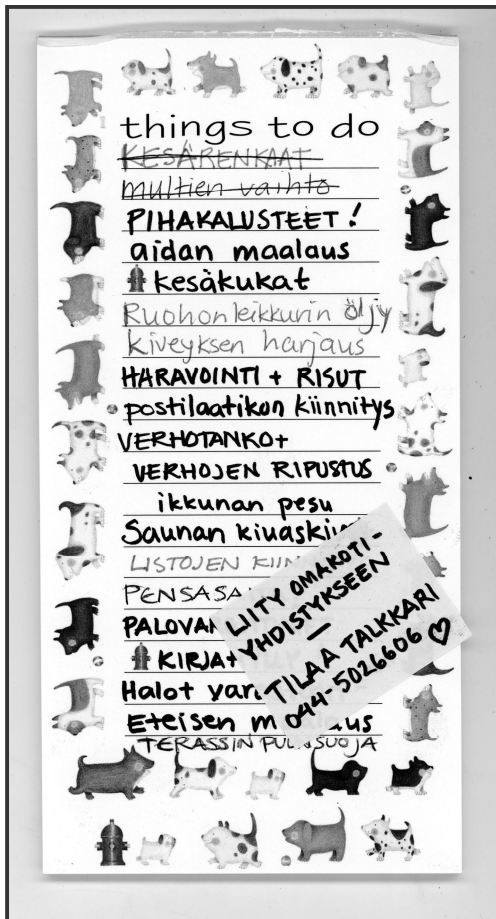 things to do
KESÄRENKAAT
multien vaihto
PIHAKALUSTEET!
aidan maalaus
kesäkukat
Ruohonleikkurin öljy
kiveyksen harjaus
HARAVOINTI + RISUT
postilaatikon kiinnitys
VERHOTANKO+
VERHOJEN RIPUSTUS
ikkunan pesu
Saunan
LISTOJEN
KIRJA
Halot
Eteisen
TERASSIN
LIITY OMAKOTI-
YHDISTYKSEEN
–
TILAA TALKKARI
044-5026606 ♡